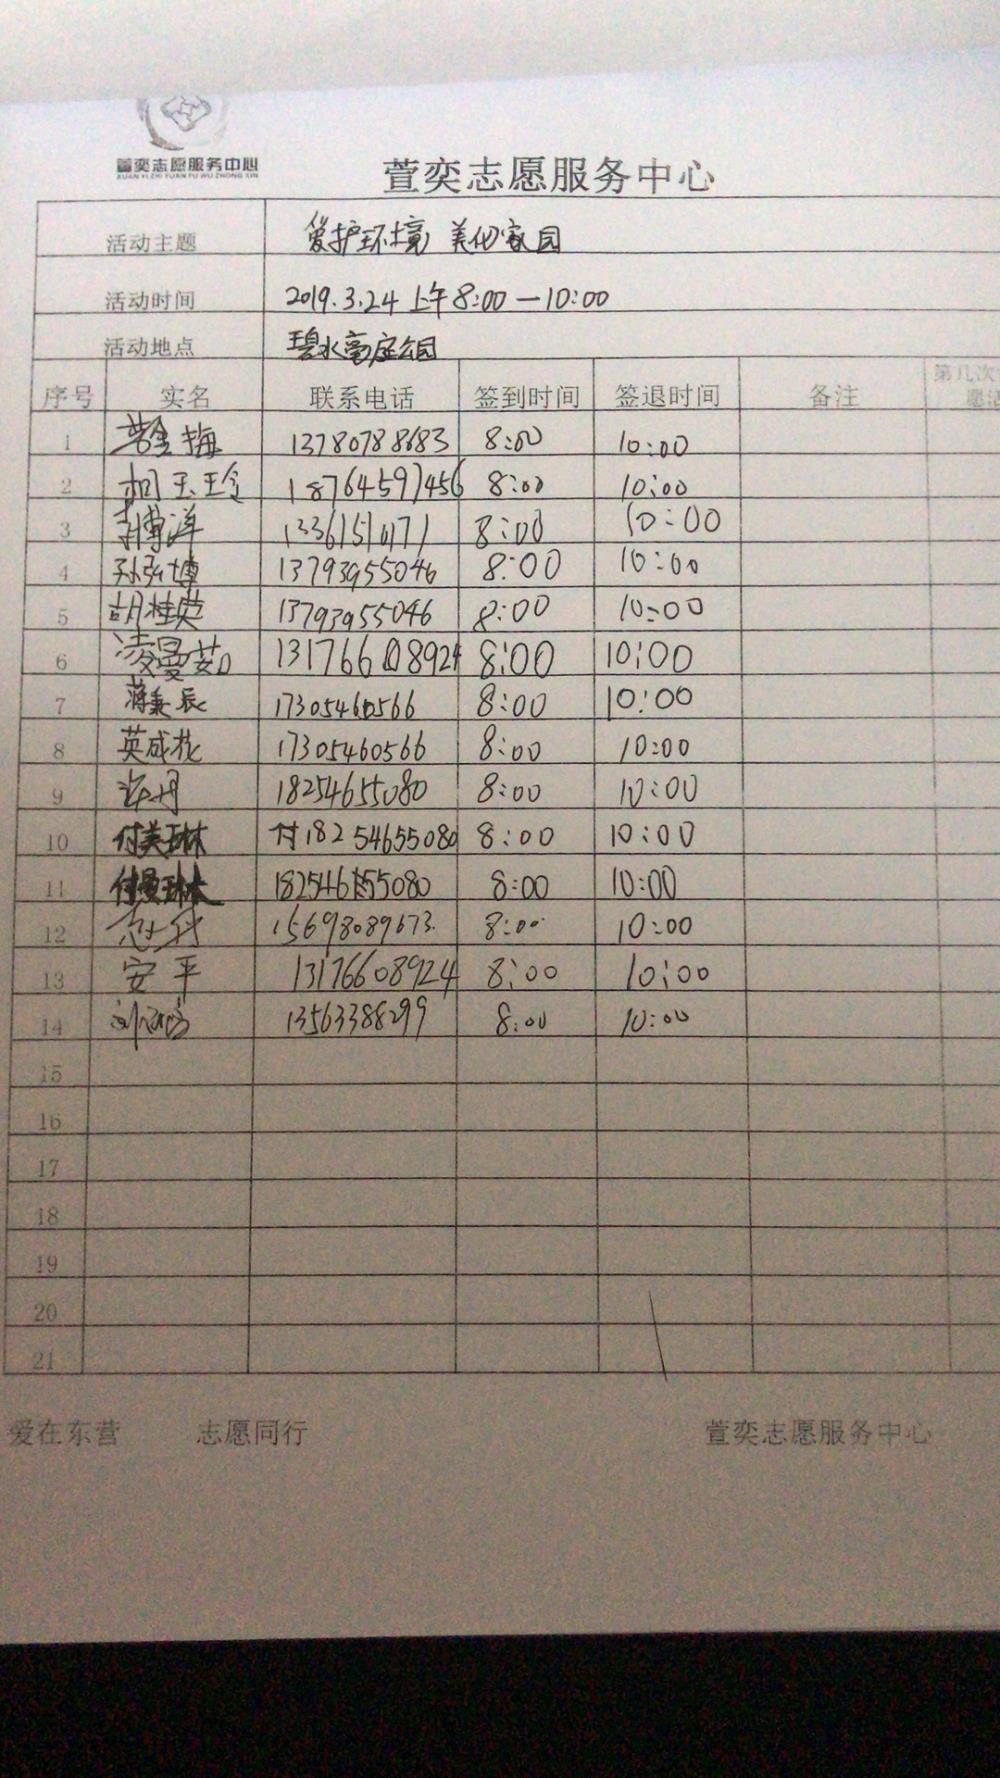 萱奕志愿服务中心
XUAN YI ZHI YUAN FU WU ZHONG XIN
萱奕志愿服务中心
活动主题 爱护环境 美化家园
活动时间 2019.3.24 上午 8:00 — 10:00
活动地点 碧水豪庭公园
序号 实名 联系电话 签到时间 签退时间 备注 第几次
1 金梅 13780788683 8:00 10:00
2 相玉玲 18764597456 8:00 10:00
3 李博洋 13361510171 8:00 10:00
4 孙弘博 13793955046 8:00 10:00
5 胡桂英 13793955046 8:00 10:00
6 凌曼茹 13176608924 8:00 10:00
7 蒋秉辰 17305460566 8:00 10:00
8 英咸花 17305460566 8:00 10:00
9 许丹 18254655080 8:00 10:00
10 付美琳 付18254655080 8:00 10:00
11 付曼琳 18254655080 8:00 10:00
12 15698089673. 8:00 10:00
13 安平 13176608924 8:00 10:00
14 13563388299 8:00 10:00
15
16
17
18
19
20
21
爱在东营 志愿同行 萱奕志愿服务中心